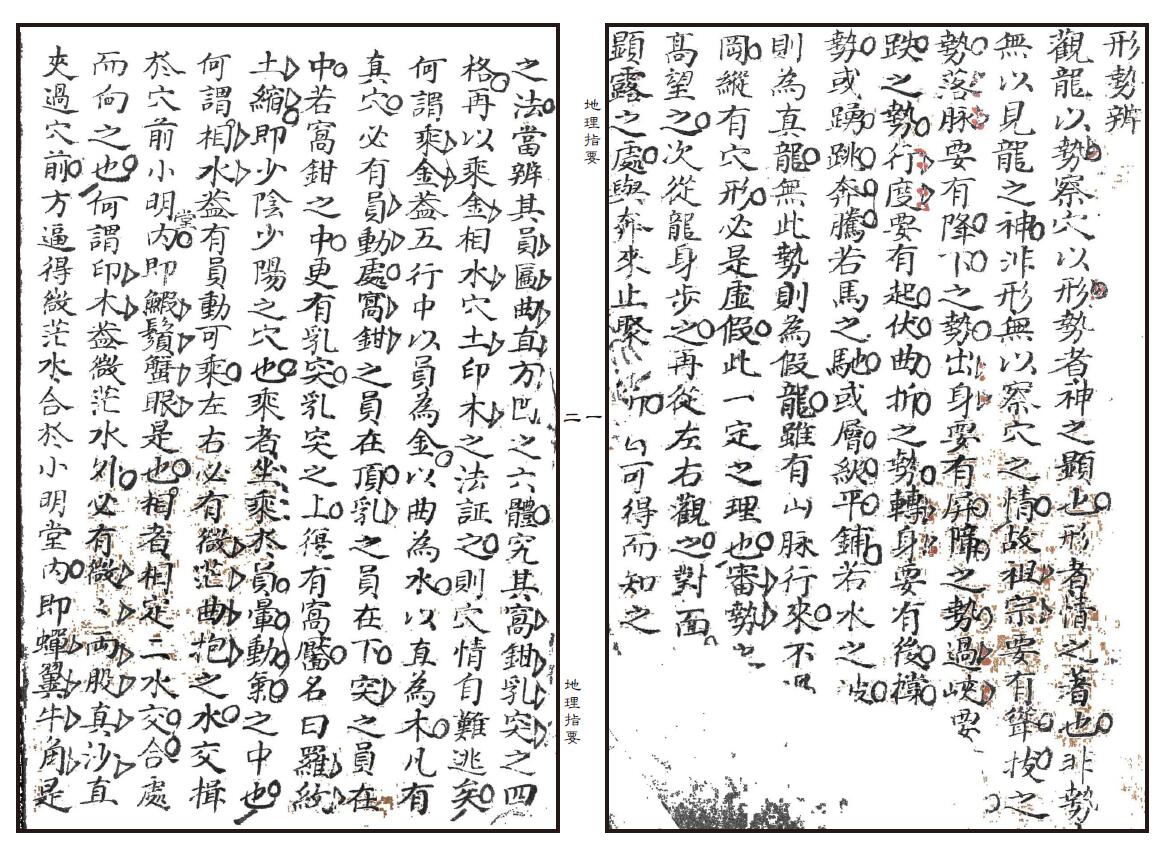 形勢辨
觀龍以勢察穴以形勢者神之顯也形者情之著也非勢
無以見龍之神非形無以察穴之情故祖宗要有聳拔之
勢落脉要有降下之勢出身要有屏障之勢過峽要
跌之勢行度要有起伏曲折之勢轉身要有後襯
勢或踴跳奔騰若馬之馳或層級平鋪若水之波
則為真龍無此勢則為假龍雖有山脈行來不
岡縱有穴形必是虛假此一定之理也審勢
高望之次從龍身步之再從左右觀之對面
顕露之處與奔來止聚 可得而知之
之法當辨其員匾曲直方凹之六體究其窩鉗乳突之四
格再以乘金相水穴土印木之法証之則穴情自難逃矣
何謂乘金葢五行中以員為金以曲為水以直為木凡有
真穴必有員動處窩鉗之員在頂乳之員在下突之員在
中若窩鉗之中更有乳突乳突之上復有窩靨名曰羅紋
土縮即少陰少陽之穴也乘者坐乘於員暈動氣之中也
何謂相水葢有員動可乘左右必有微茫曲抱之水交揖
於穴前小明堂內即鰕鬚蟹眼是也相者相定二水交合處
而向之也何謂印木葢微茫水外必有微微兩股真沙直
夾過穴前方逼得微茫水合於小明堂內即蟬翼牛角是
地理指要
一
二
地理指要